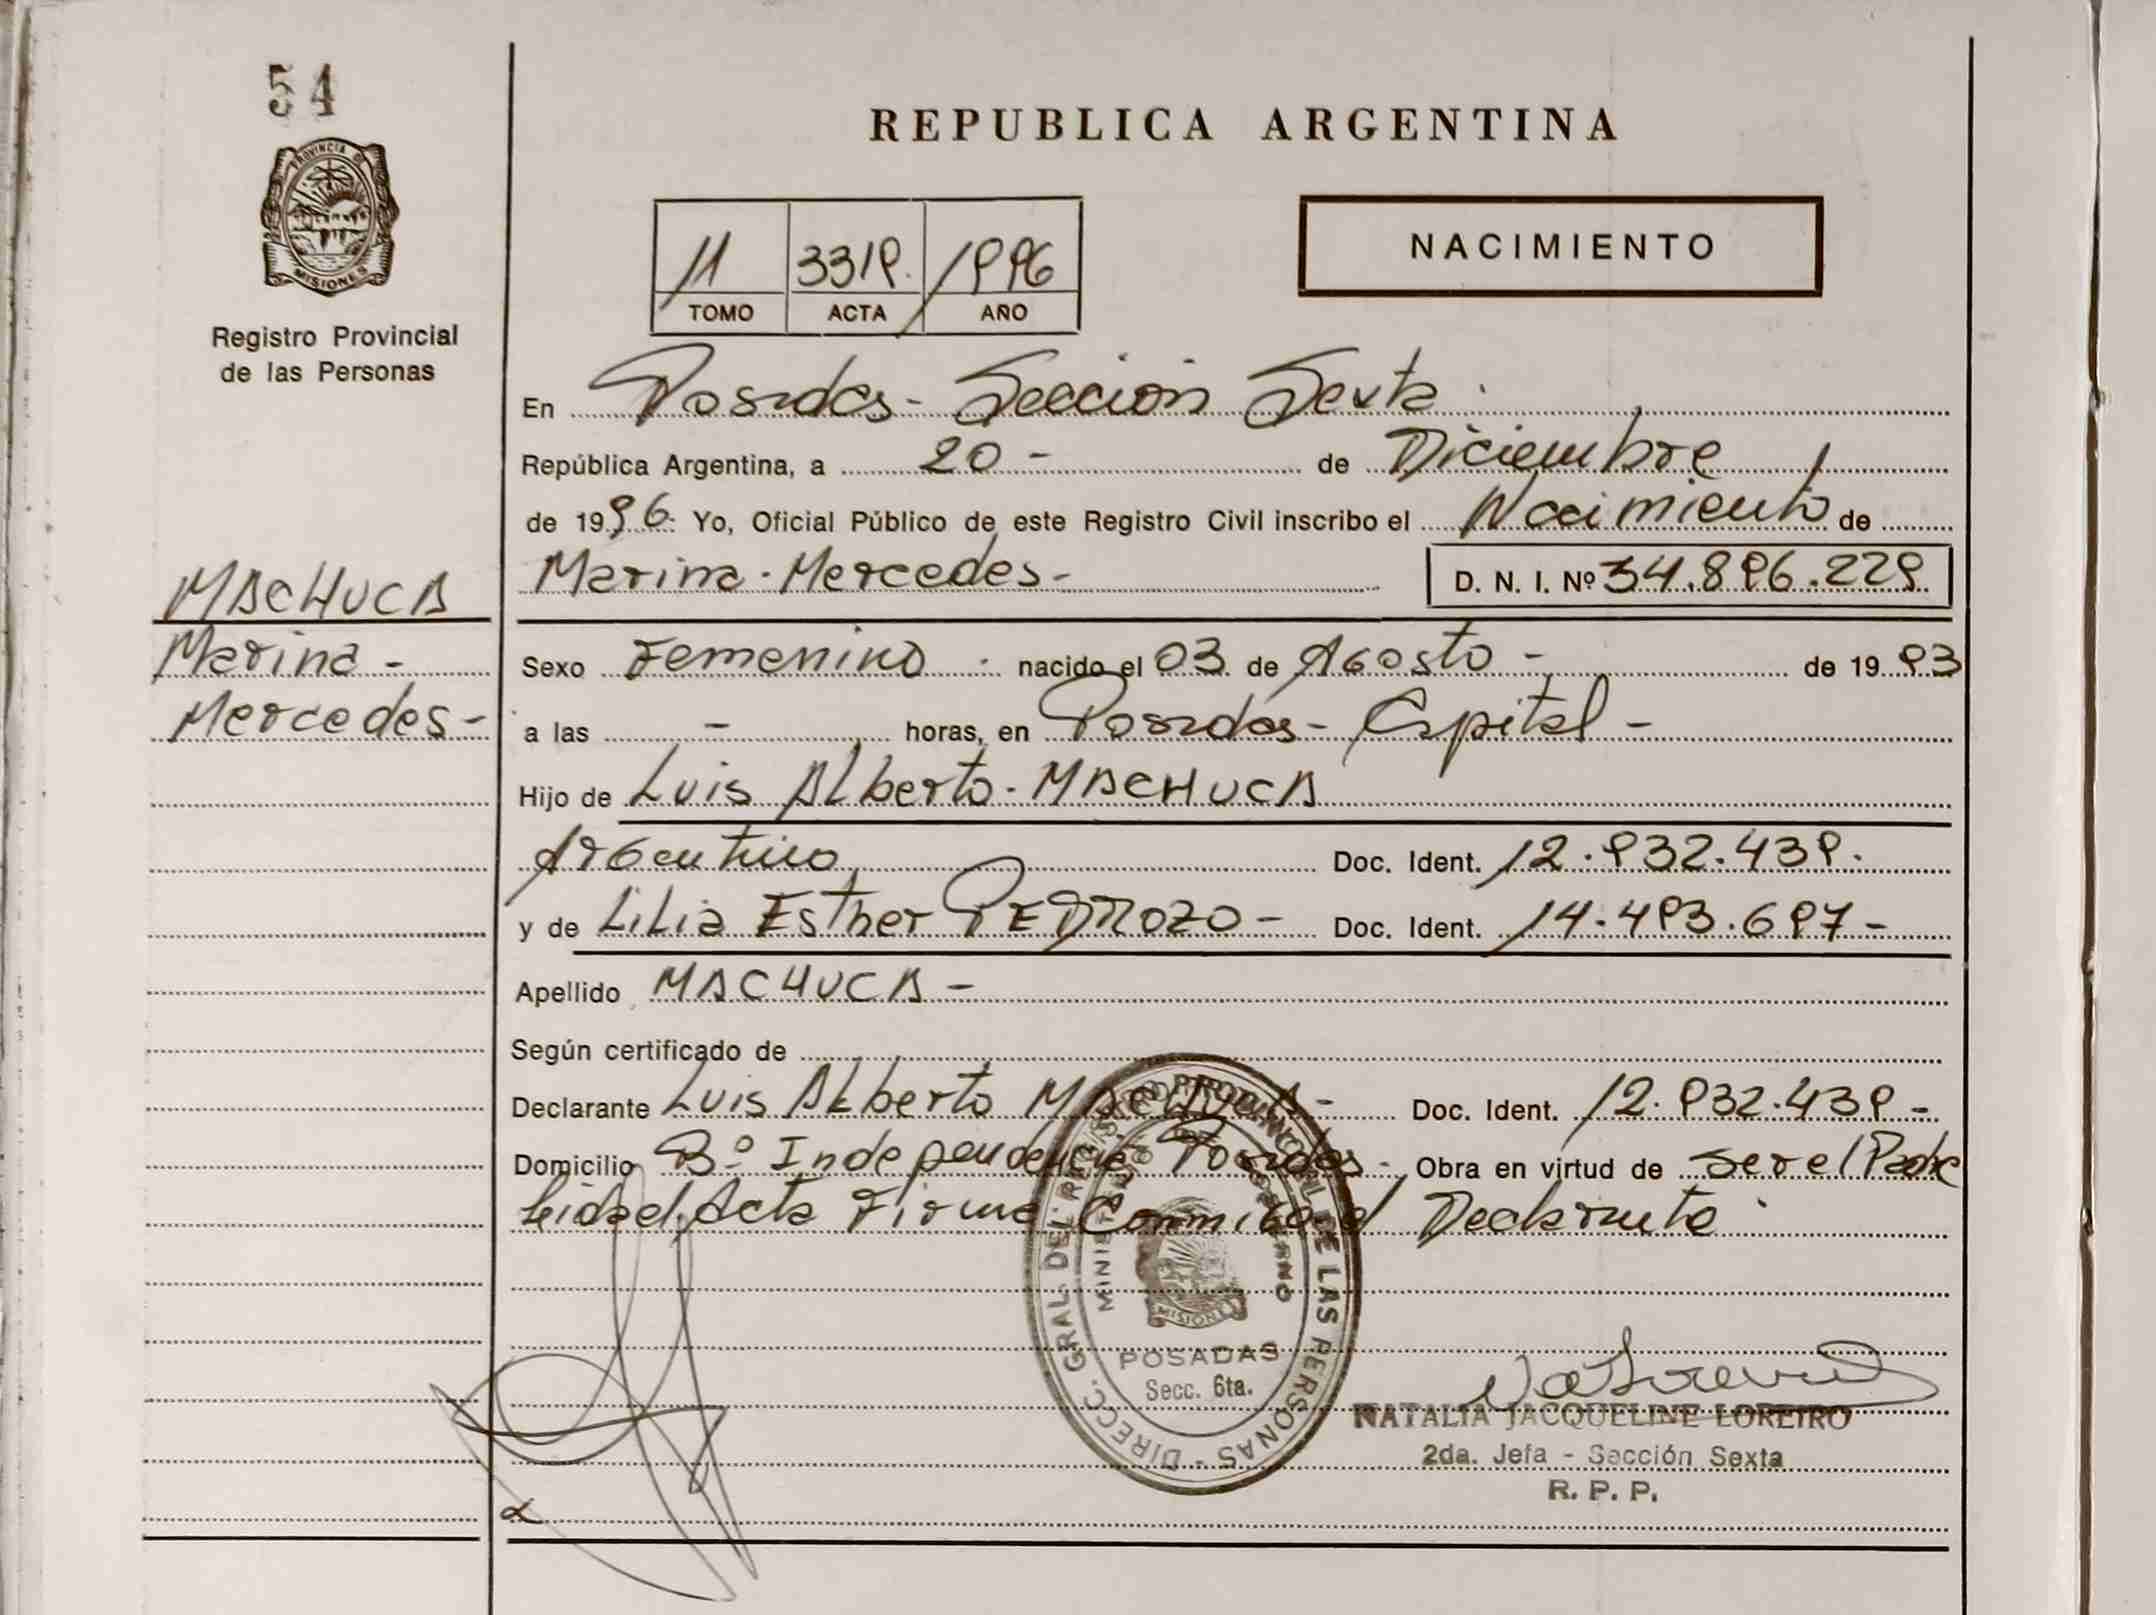 54
PROVINCIA DE
MISIONES
Registro Provincial
de las Personas
REPUBLICA ARGENTINA
11 3319. 1996
TOMO ACTA AÑO
NACIMIENTO
En Posadas - Sección Sexta.
República Argentina, a 20 - de Diciembre
de 1996. Yo, Oficial Público de este Registro Civil inscribo el Nacimiento de
Marina - Mercedes - D. N. I. Nº 34.896.229.
MACHUCA
Marina -
Mercedes -
Sexo Femenino . nacido el 03 de Agosto - de 1993
a las - horas, en Posadas - Capital -
Hijo de Luis Alberto - MACHUCA
Argentino Doc. Ident. 12.932.439.
y de Lilia Esther PEDROZO - Doc. Ident. 14.493.697 -
Apellido MACHUCA -
Según certificado de
Declarante Luis Alberto MACHUCA - Doc. Ident. 12.932.439 -
Domicilio Bº Independencia Posadas - Obra en virtud de ser el Padre
Leida el Acta Firma Conmigo el Declarante.
DIRECC. GRAL. DEL REGISTRO PROVINCIAL DE LAS PERSONAS -
MINISTERIO DE GOBIERNO
MISIONES
POSADAS
Secc. 6ta.
NATALIA JACQUELINE LOREIRO
2da. Jefa - Sección Sexta
R. P. P.